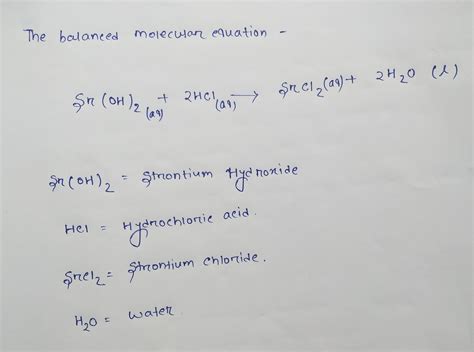 The balanced molecular equation -
Sr(OH)2 (aq) + 2HCl (aq) → SrCl2 (aq) + 2H2O (l)
Sr(OH)2 = Strontium Hydroxide
HCl = Hydrochloric acid.
SrCl2 = Strontium chloride.
H2O = water.